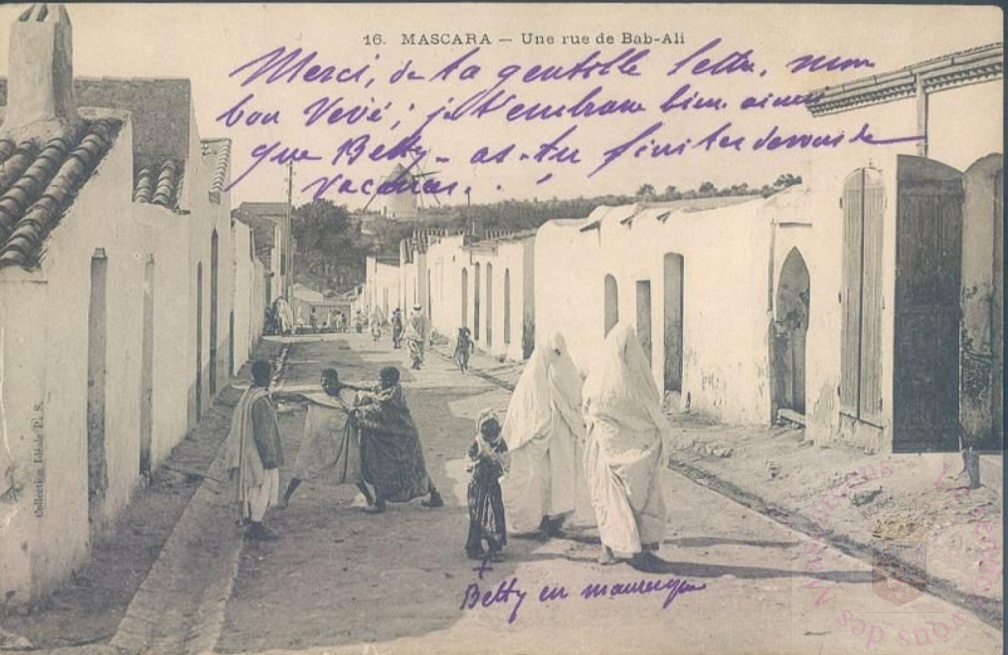 16. MASCARA — Une rue de Bab-Ali
Merci, de ta gentille lettre, mon
bon Vévé; je t'embrasse bien ainsi
que Betty - as-tu fini tes devoirs de
vacances...
Collection Idéale P. S.
Betty en mauresque